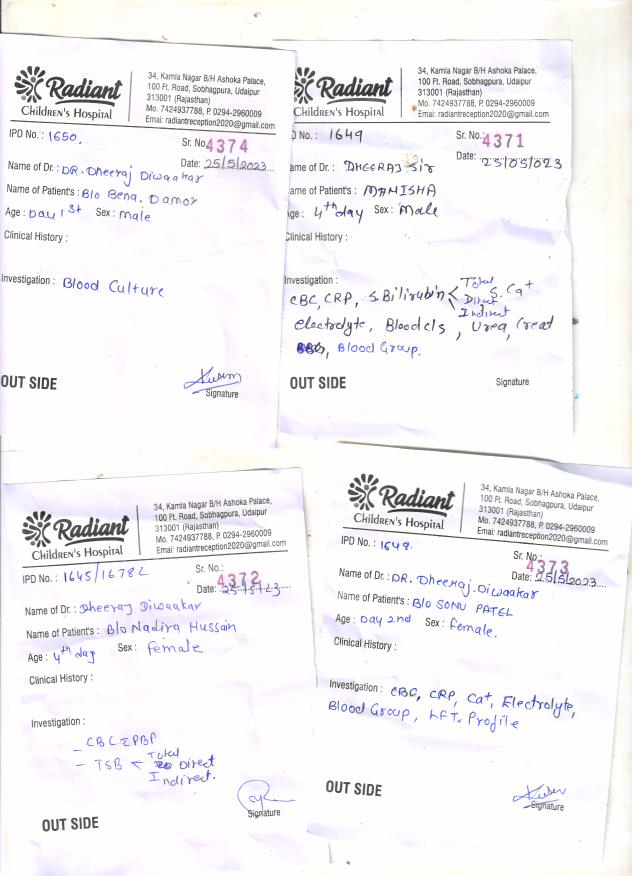 Radiant
Children's Hospital
34, Kamla Nagar B/H Ashoka Palace,
100 Ft. Road, Sobhagpura, Udaipur
313001 (Rajasthan)
Mo. 7424937788, P. 0294-2960009
Emai: radiantreception2020@gmail.com
IPD No. : 1650.
Sr. No. 4374
Date: 25/5/2023
Name of Dr. : DR. Dheeraj Diwaakar
Name of Patient's : B/o Bena. Damor
Age : Day 1st Sex : male
Clinical History :
Investigation : Blood Culture
OUT SIDE
Signature
Radiant
Children's Hospital
34, Kamla Nagar B/H Ashoka Palace,
100 Ft. Road, Sobhagpura, Udaipur
313001 (Rajasthan)
Mo. 7424937788, P. 0294-2960009
Emai: radiantreception2020@gmail.com
D No. : 1649
Sr. No. 4371
Date: 25/05/023
ame of Dr. : DHEERAJ Sir
ame of Patient's : MANISHA
ge : 4th day Sex : Male
Clinical History :
Investigation :
CBC, CRP, S.Bilirubin < Total Direct Indirect S. Ca+
electrolyte, Blood c/s, Urea, Creat
Blood Group.
OUT SIDE
Signature
Radiant
Children's Hospital
34, Kamla Nagar B/H Ashoka Palace,
100 Ft. Road, Sobhagpura, Udaipur
313001 (Rajasthan)
Mo. 7424937788, P. 0294-2960009
Emai: radiantreception2020@gmail.com
IPD No. : 1645/16782
Sr. No.: 4372
Date: 25/5/23
Name of Dr. : Dheeraj Diwaakar
Name of Patient's : B/o Nadira Hussain
Age : 4th day Sex : female
Clinical History :
Investigation :
- CBC PBF
- TSB < Total Direct
Indirect.
OUT SIDE
Signature
Radiant
Children's Hospital
34, Kamla Nagar B/H Ashoka Palace,
100 Ft. Road, Sobhagpura, Udaipur
313001 (Rajasthan)
Mo. 7424937788, P. 0294-2960009
Emai: radiantreception2020@gmail.com
IPD No. : 1648.
Sr. No.: 4373
Date: 25/5/2023
Name of Dr. : DR. Dheeraj. Diwaakar
Name of Patient's : B/o SONU PATEL
Age : Day 2nd Sex : female.
Clinical History :
Investigation : CBC, CRP, Ca+, Electrolyte,
Blood Group, LFT. Profile
OUT SIDE
Signature